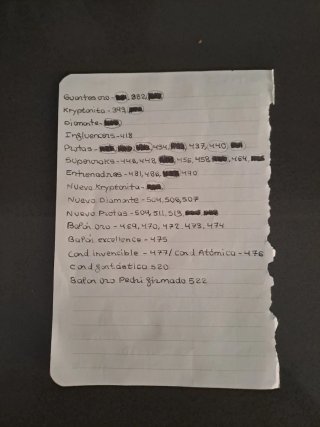 Guantes oro - 382,
Kryptonita - 349,
Diamante -
Influencers - 418
Plutas - 434, 437, 440,
Superoraks - 448, 449, 456, 458, 464,
Entrenadores - 481, 486, 490
Nuevo Kryptonita -
Nuevo Diamante - 504, 506, 507
Nuevo Plutas - 509, 511, 513
Balón oro - 469, 470, 472, 473, 474
Balón excellence - 475
Card invencible - 477 / Card Atómica - 476
Card fantástica 520
Balon oro Pedri firmado 522